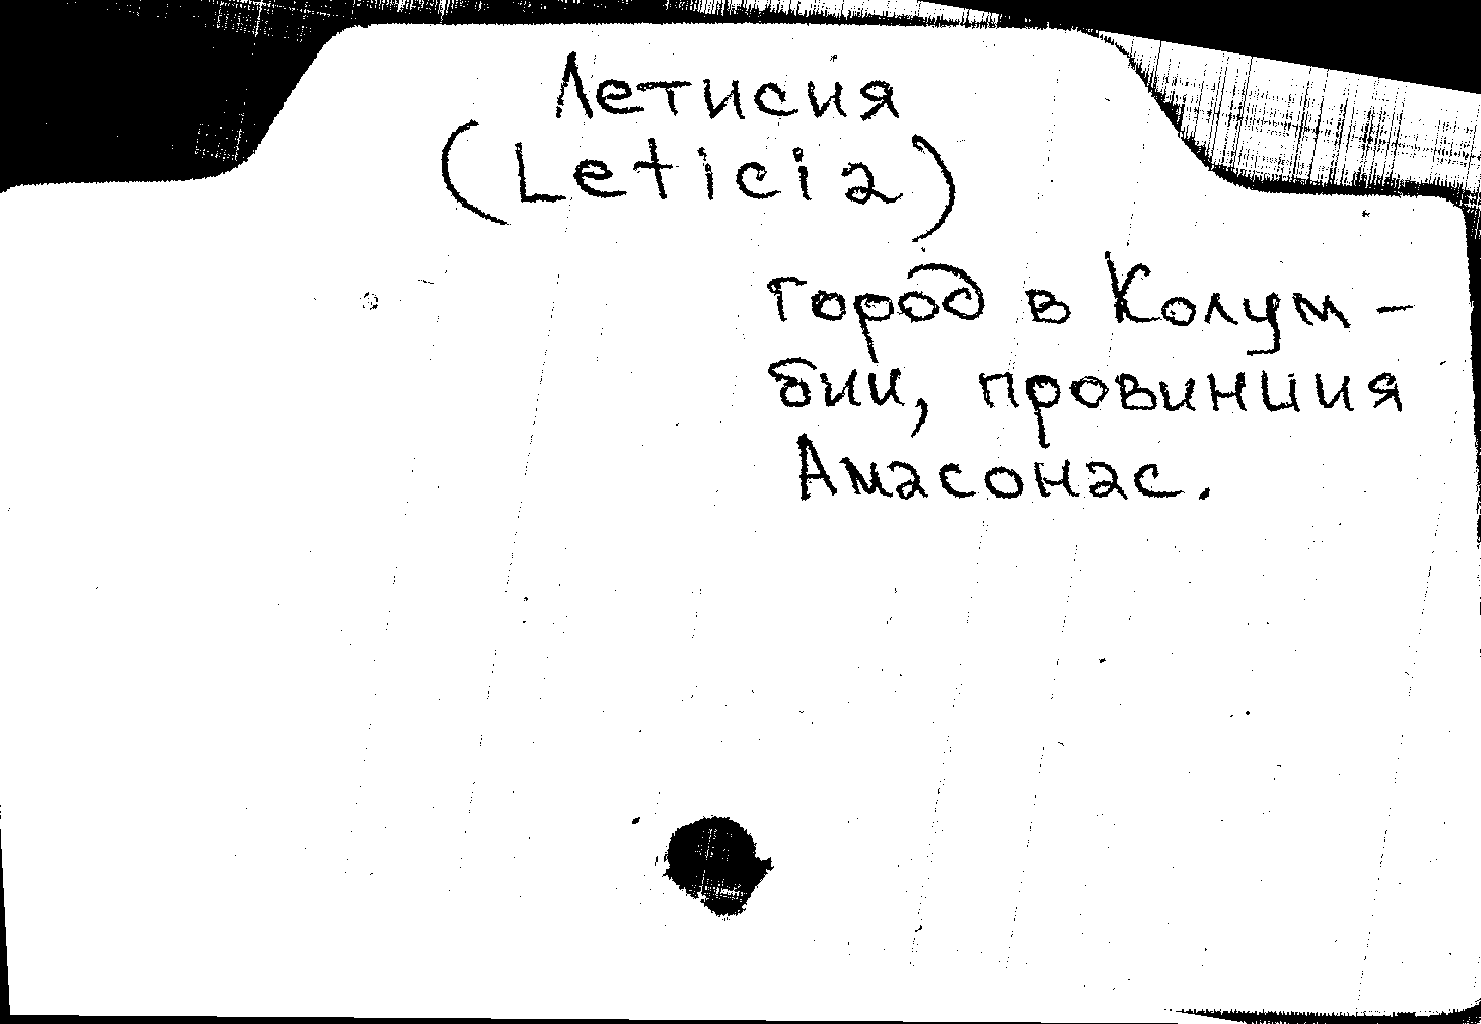 Летисия
(Leticia)
город в Колум-
бии, провинция
Амасонас.